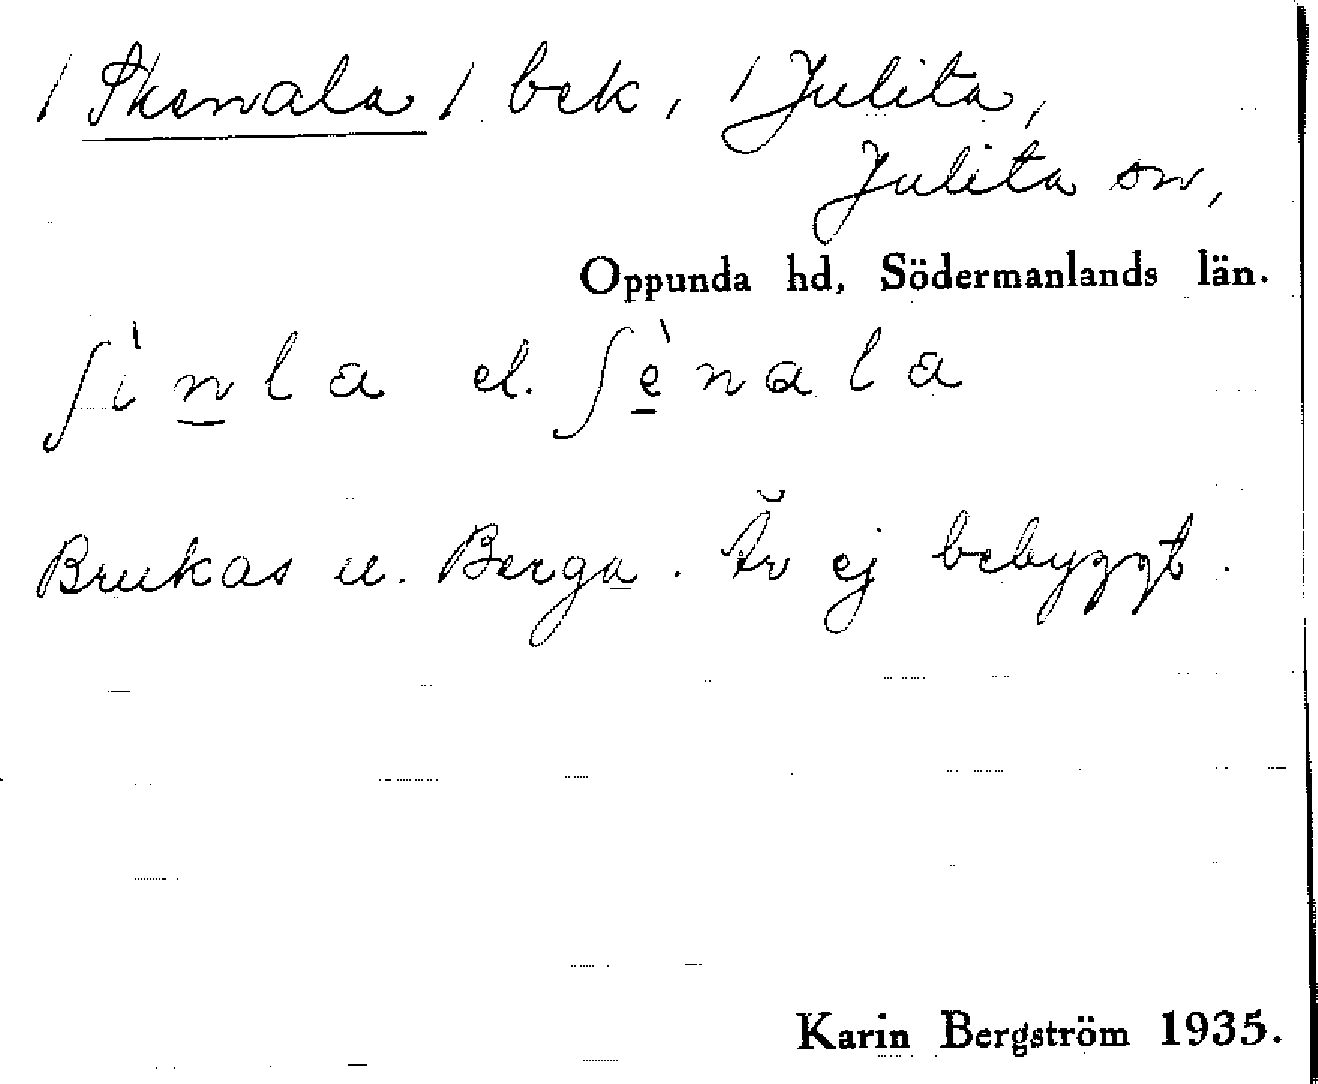 / Skenala / bek, / Julita,
Julita sn,
Oppunda hd, Södermanlands län.
ʃìn̲la el. ʃè̲nala
Brukas u. Berga. Är ej bebyggt.
Karin Bergström 1935.